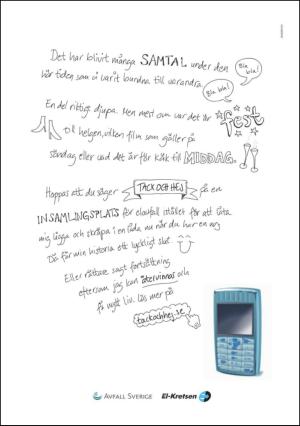 Det har blivit många SAMTAL under den
här tiden som vi varit bundna till varandra.
Bla bla!
Bla bla!
En del riktigt djupa. Men mest om var det är fest
till helgen, vilken film som går på
söndag eller vad det är för käk till MIDDAG.
Hoppas att du säger TACK OCH HEJ på en
INSAMLINGSPLATS för elavfall istället för att låta
mig ligga och skräpa i en låda nu när du har en ny.
Då får min historia ett lyckligt slut.
Eller rättare sagt fortsättning
eftersom jag kan återvinnas och
få nytt liv. Läs mer på
tackochhej.se
AVFALL SVERIGE
El-Kretsen